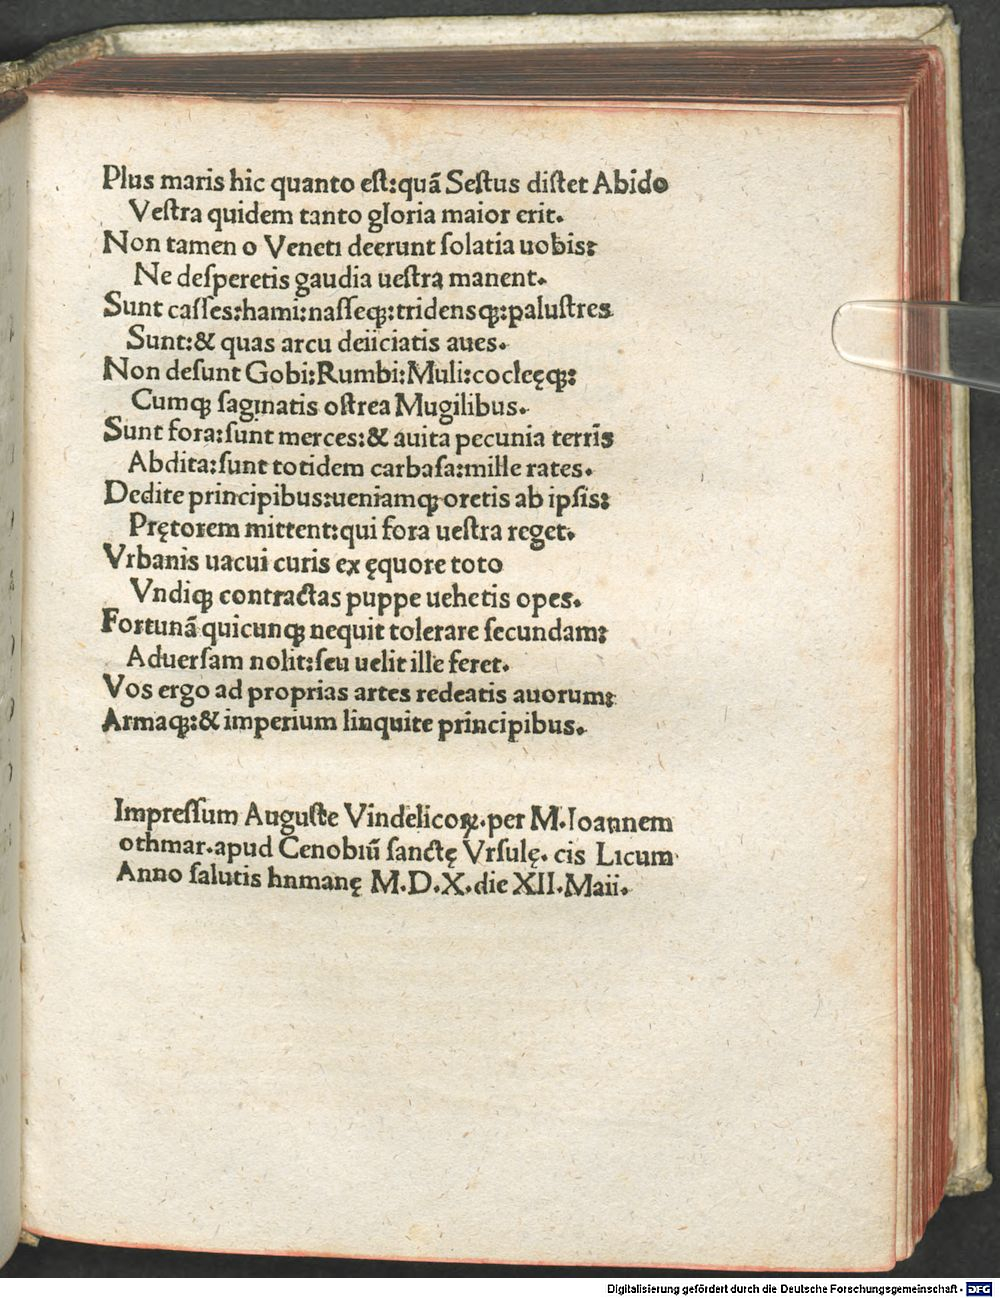 Plus maris hic quanto eſt:quã Seſtus diſtet Abido
Veſtra quidem tanto gloria maior erit.
Non tamen o Veneti deerunt ſolatia uobis:
Ne deſperetis gaudia ueſtra manent.
Sunt caſſes:hami:naſſeqꝫ:tridensqꝫ:paluſtres
Sunt:& quas arcu deiiciatis aues.
Non deſunt Gobi:Rumbi:Muli:cocleęqꝫ:
Cumqꝫ ſaginatis oſtrea Mugilibus.
Sunt fora:ſunt merces:& auita pecunia terrĩs
Abdita:ſunt totidem carbaſa:mille rates.
Dedite principibus:ueniamqꝫ oretis ab ipſis:
Prętorem mittent:qui fora ueſtra reget.
Vrbanis uacui curis ex ęquore toto
Vndiqꝫ contractas puppe uehetis opes.
Fortunã quicunqꝫ nequit tolerare ſecundam:
Aduerſam nolit:ſeu uelit ille feret.
Vos ergo ad proprias artes redeatis auorum:
Armaqꝫ:& imperium linquite principibus.
Impreſſum Auguſte Vindelicoꝝ.per M.Ioannem
othmar.apud Cenobiũ ſanctę Vrſulę. cis Licum
Anno ſalutis hnmanę M.D.X.die XII.Maii.
Digitalisierung gefördert durch die Deutsche Forschungsgemeinschaft - DFG